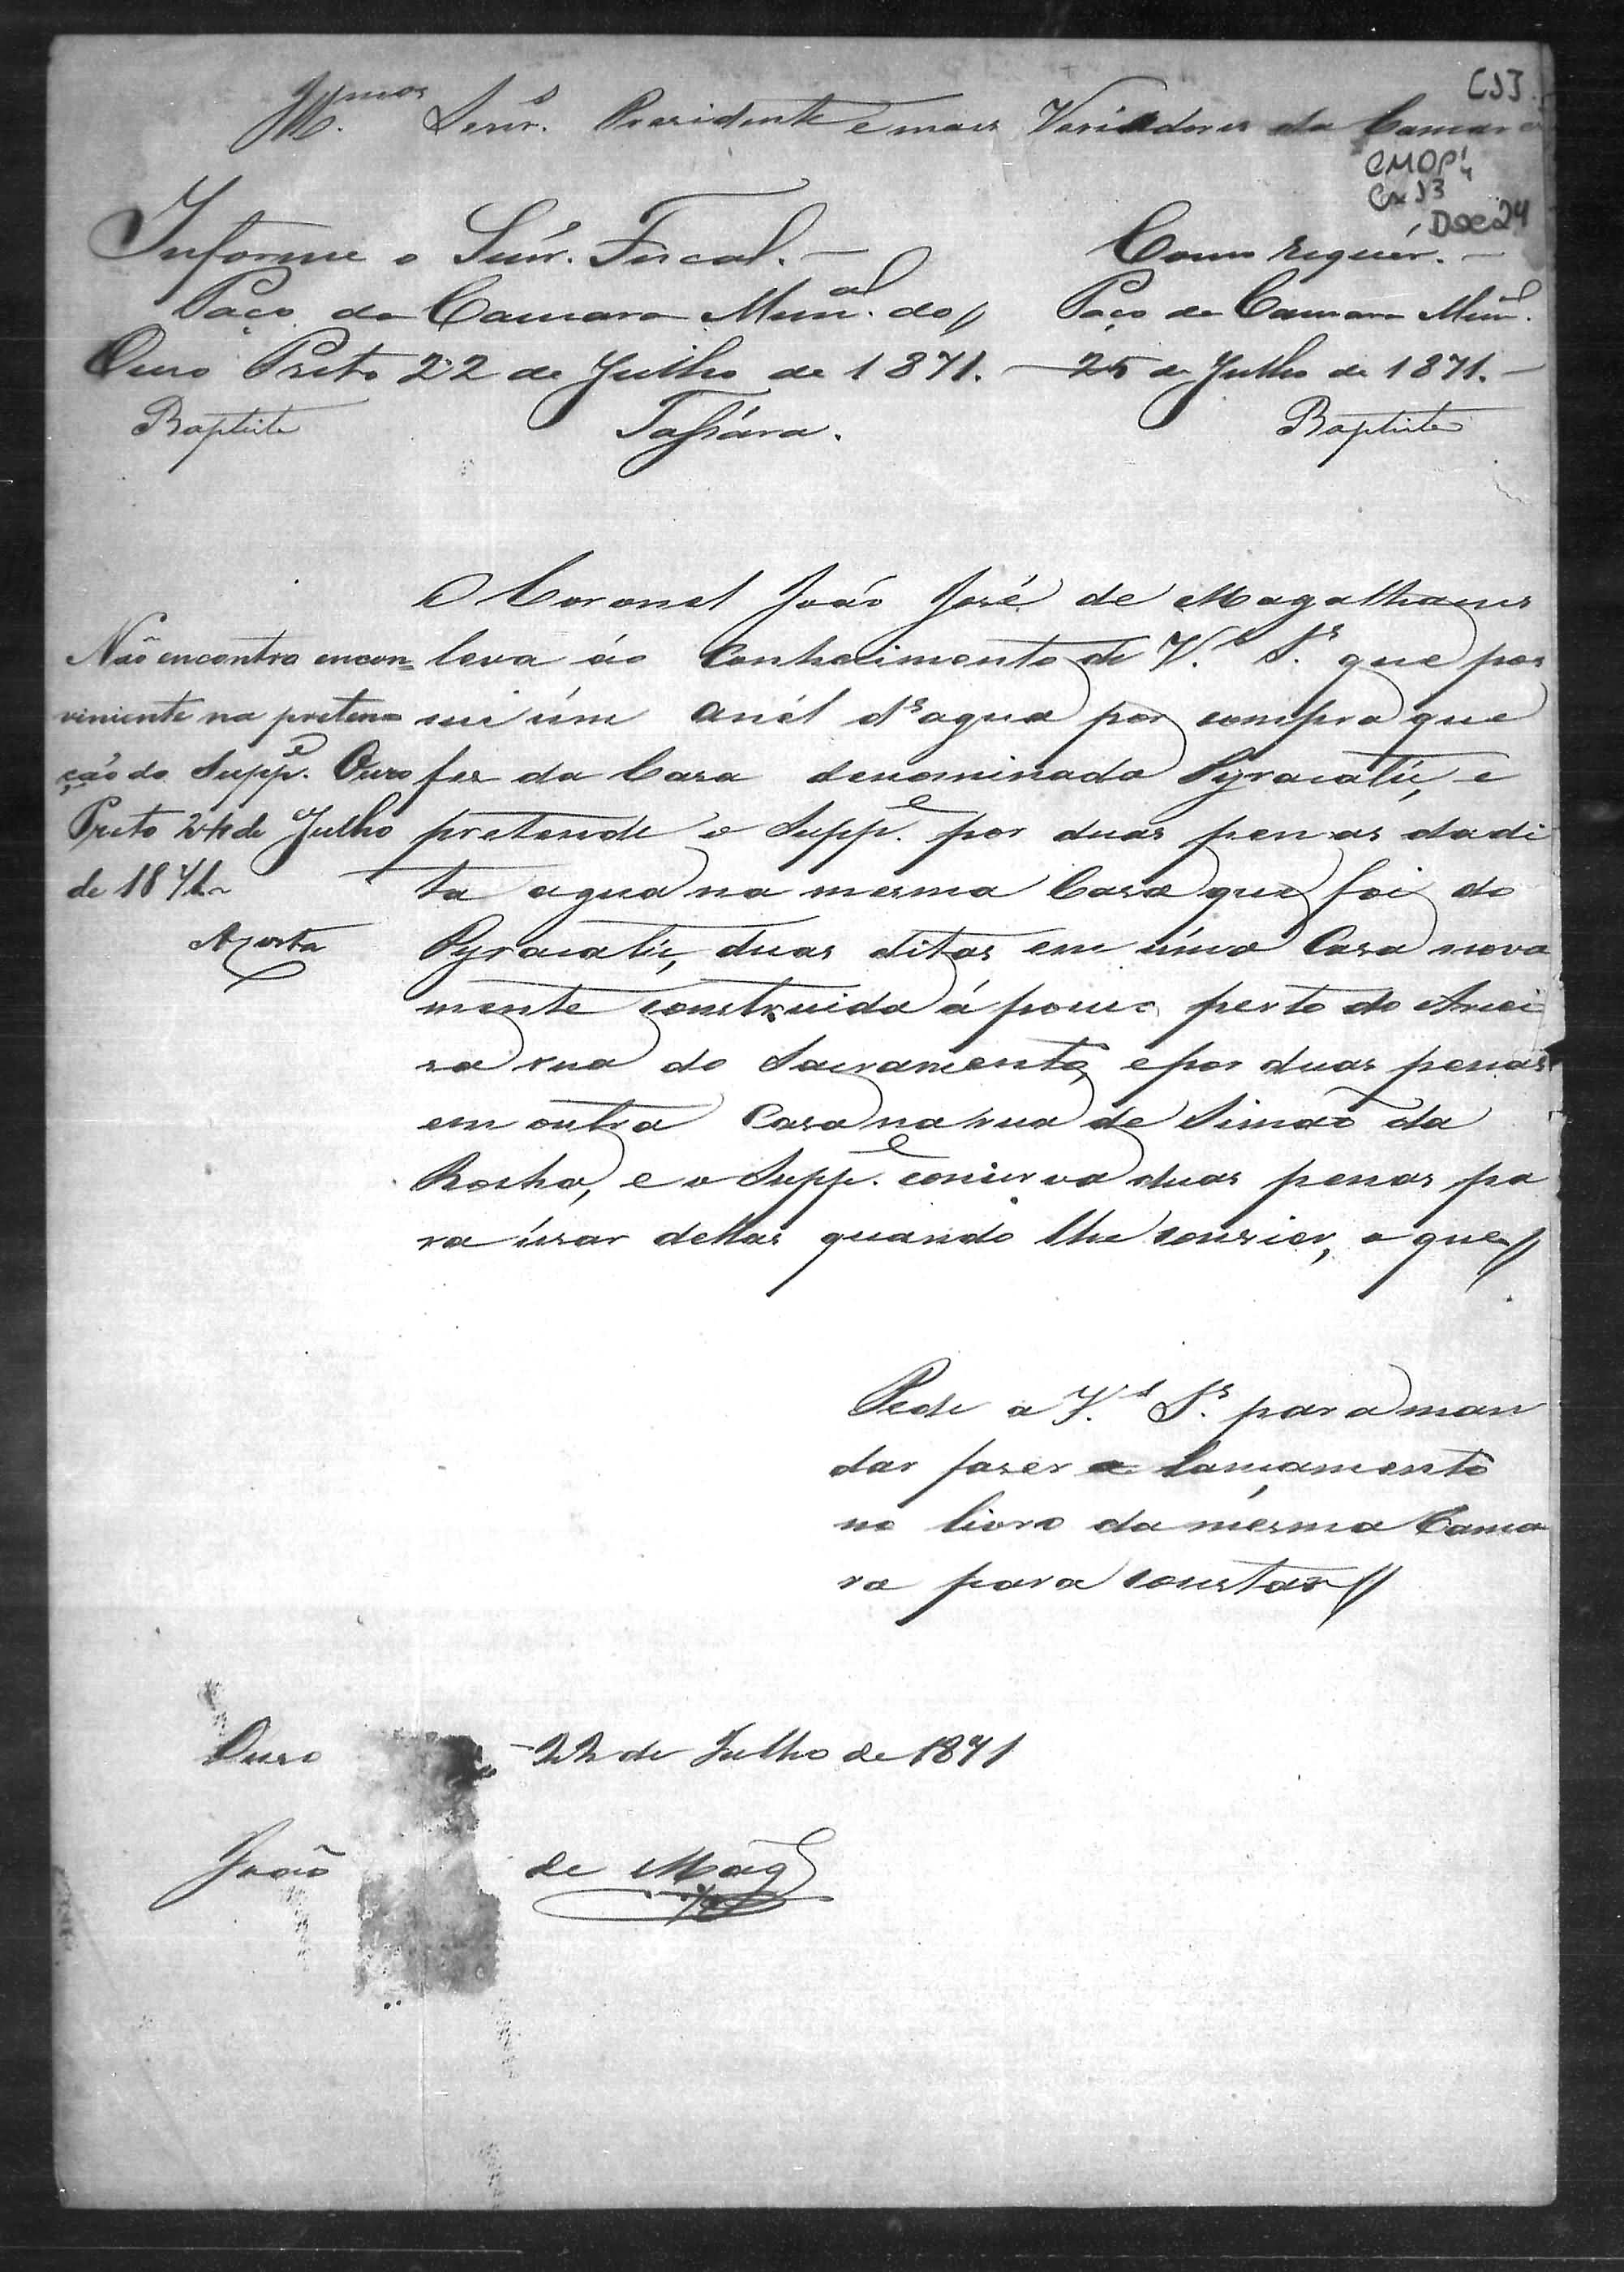 CJJ.
Ill.mos Senr.s Presidente e mais Veriadores da Camara
CMOP
Cx 13
Doc 24
Informe o Snr. Fiscal. —
Paço da Camara Mun.al do
Ouro Preto 22 de Julho de 1871. —
Baptista
Como requér. —
Paço da Camara Mun.al
25 de Julho de 1871. —
Baptista
Não encontro encon=
viniente na preten=
ção do Supp.e Ouro
Preto 24 de Julho
de 1871
O Coronel João José de Magalhaens
leva áo Conhecimento de V.s S.s que pos
sui úm anél d'agua por compra que
fes da Casa denominada Pyracatú, e
pretende o Supp.e por duas penas da di
ta agua na mesma Casa que foi do
Pyracatú, duas ditas em úma Casa nova
mente construida á pouco perto do
rua do Sacramento, e por duas penas
em outra Casa na rua de Simão da
Rocha, e o Supp.e conserva duas penas pa
ra úsar dellas quando lhe conviér, o que
Pede a V.s S.s para man
dar faser o lançamento
no livro da mesma Cama
ra para constar
Ouro 22 de Julho de 1871
João de Mag.s